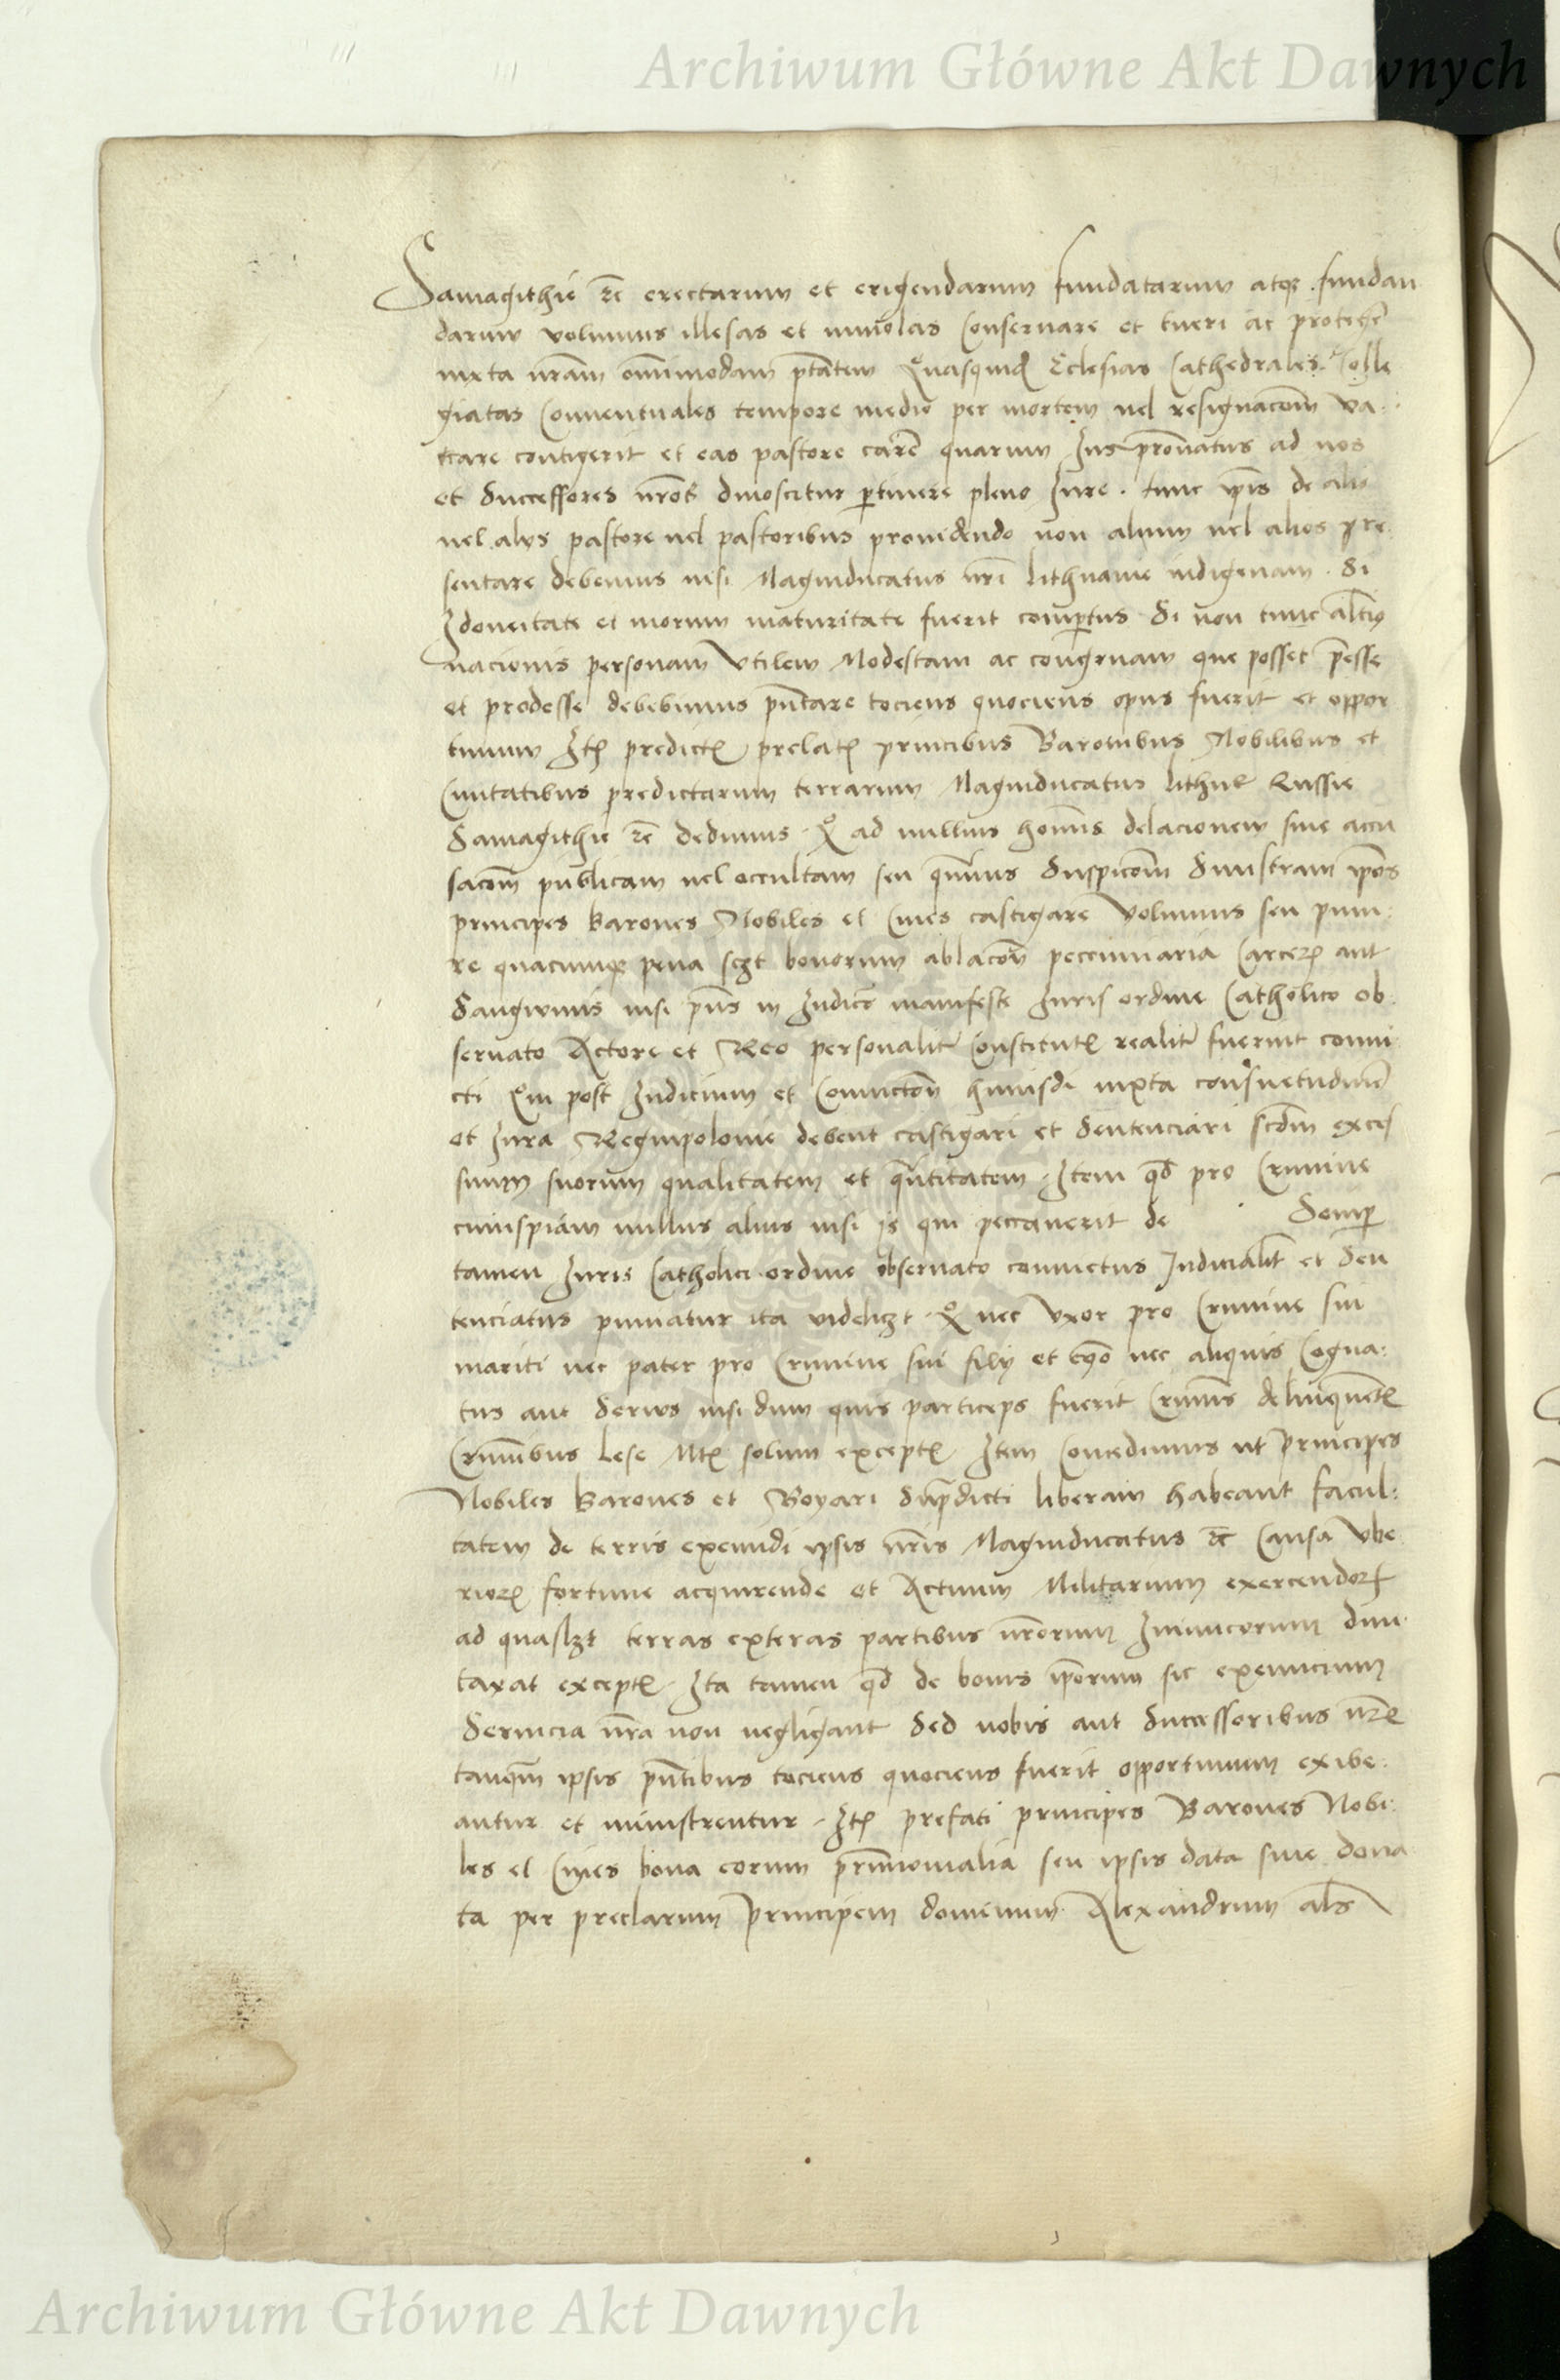 Archiwum Główne Akt Dawnych
Samagithie etc erectarum et erigendarum fundatarum atque fundan
darum volumus illesas et inviolas Conservare et tueri ac proteger̄
iuxta nr̄am om̄imodam ptātem Quasquid Eclesias Cathedrales Colle
giatas Conventuales tempore medio per mortem vel resignacōm va
ccare contigerit et eas pastore carer̄ quarum Jus pro̅natus ad nos
et Successores nr̄os dinoscitur ptinere pleno Jure . tunc ip̄is de alio
vel alijs pastore vel pastoribus providendo non alium vel alios pre
sentare debemus nisi Magniducatus nr̄i lithuanie indigenam . Si
Idoneitate et morum maturitate fuerit compertus Si non tunc alterius
nacionis personam Utilem Modestam ac congruam que posset p̄esse
et prodesse debebimus pn̄tare tociens quociens opus fuerit et oppor
tunum Itē predictis prelatis principibus Baronibus Nobilibus et
Civitatibus predictarum terrarum Magniducatus lithuē Russie
Samagithie etc dedimus . Qd ad nullius hominis delacionem sive accu
sacōm publicam vel occultam seu qm̄vis Suspicōm Sinistram ip̄os
principes barones Nobiles et Cives castigare Volumus seu puni
re quacumque pena sczt bonorum ablacōn peccuniaria Carceris aut
Sangwinis nisi prius in Judicio manifeste Juris ordine Catholico ob
servato Actore et Reo personaliter Constitutis realiter fuerint convi
cti Qui post Judicium et Convictōn huiusdi iuxta consuetudinēs
et Jura Regnipolonie debent castigari et Sentenciari scdm exces
suum suorum qualitatem et qn̄titatem . Item qd pro Crimine
cuiuspiam nullus alius nisi is qui peccaverit de Semp
tamen Juris Catholici ordine observato convictus Judicialit̄ et Sen
tenciatus puniatur ita videliczt Qd nec Uxor pro Crimine sui
mariti nec pater pro Crimine sui filij et eq̄o nec aliquis Cogna
tus aut Servus nisi dum quis particeps fuerit Criminis delinquentis
Criminibus Lese Mtis solum exceptis Item Concedimus ut principes
Nobiles barones et Boyari Sup̄dicti liberam habeant facul
tatem de terris exeundi ipsis nr̄is Magniducatus etc Causa Ube
rioris fortune acquirende et Actuum Militarium exercendorum
ad quaslzt terras exteras partibus nr̄orum Inimicorum dun
taxat exceptis . Ita tamen qd de bonis ip̄orum sic exeuncium
Servicia nr̄a non negligant Sed nobis aut Successoribus nr̄is
tanqm ipsis pn̄tibus tociens quociens fuerit opportunum exibe
antur et ministrentur . Itē prefati principes Barones Nobi
les et Cives bona eorum pr̄imonialia seu ipsis data sive dona
ta per preclarum principem dominum Alexandrum als
Archiwum Główne Akt Dawnych